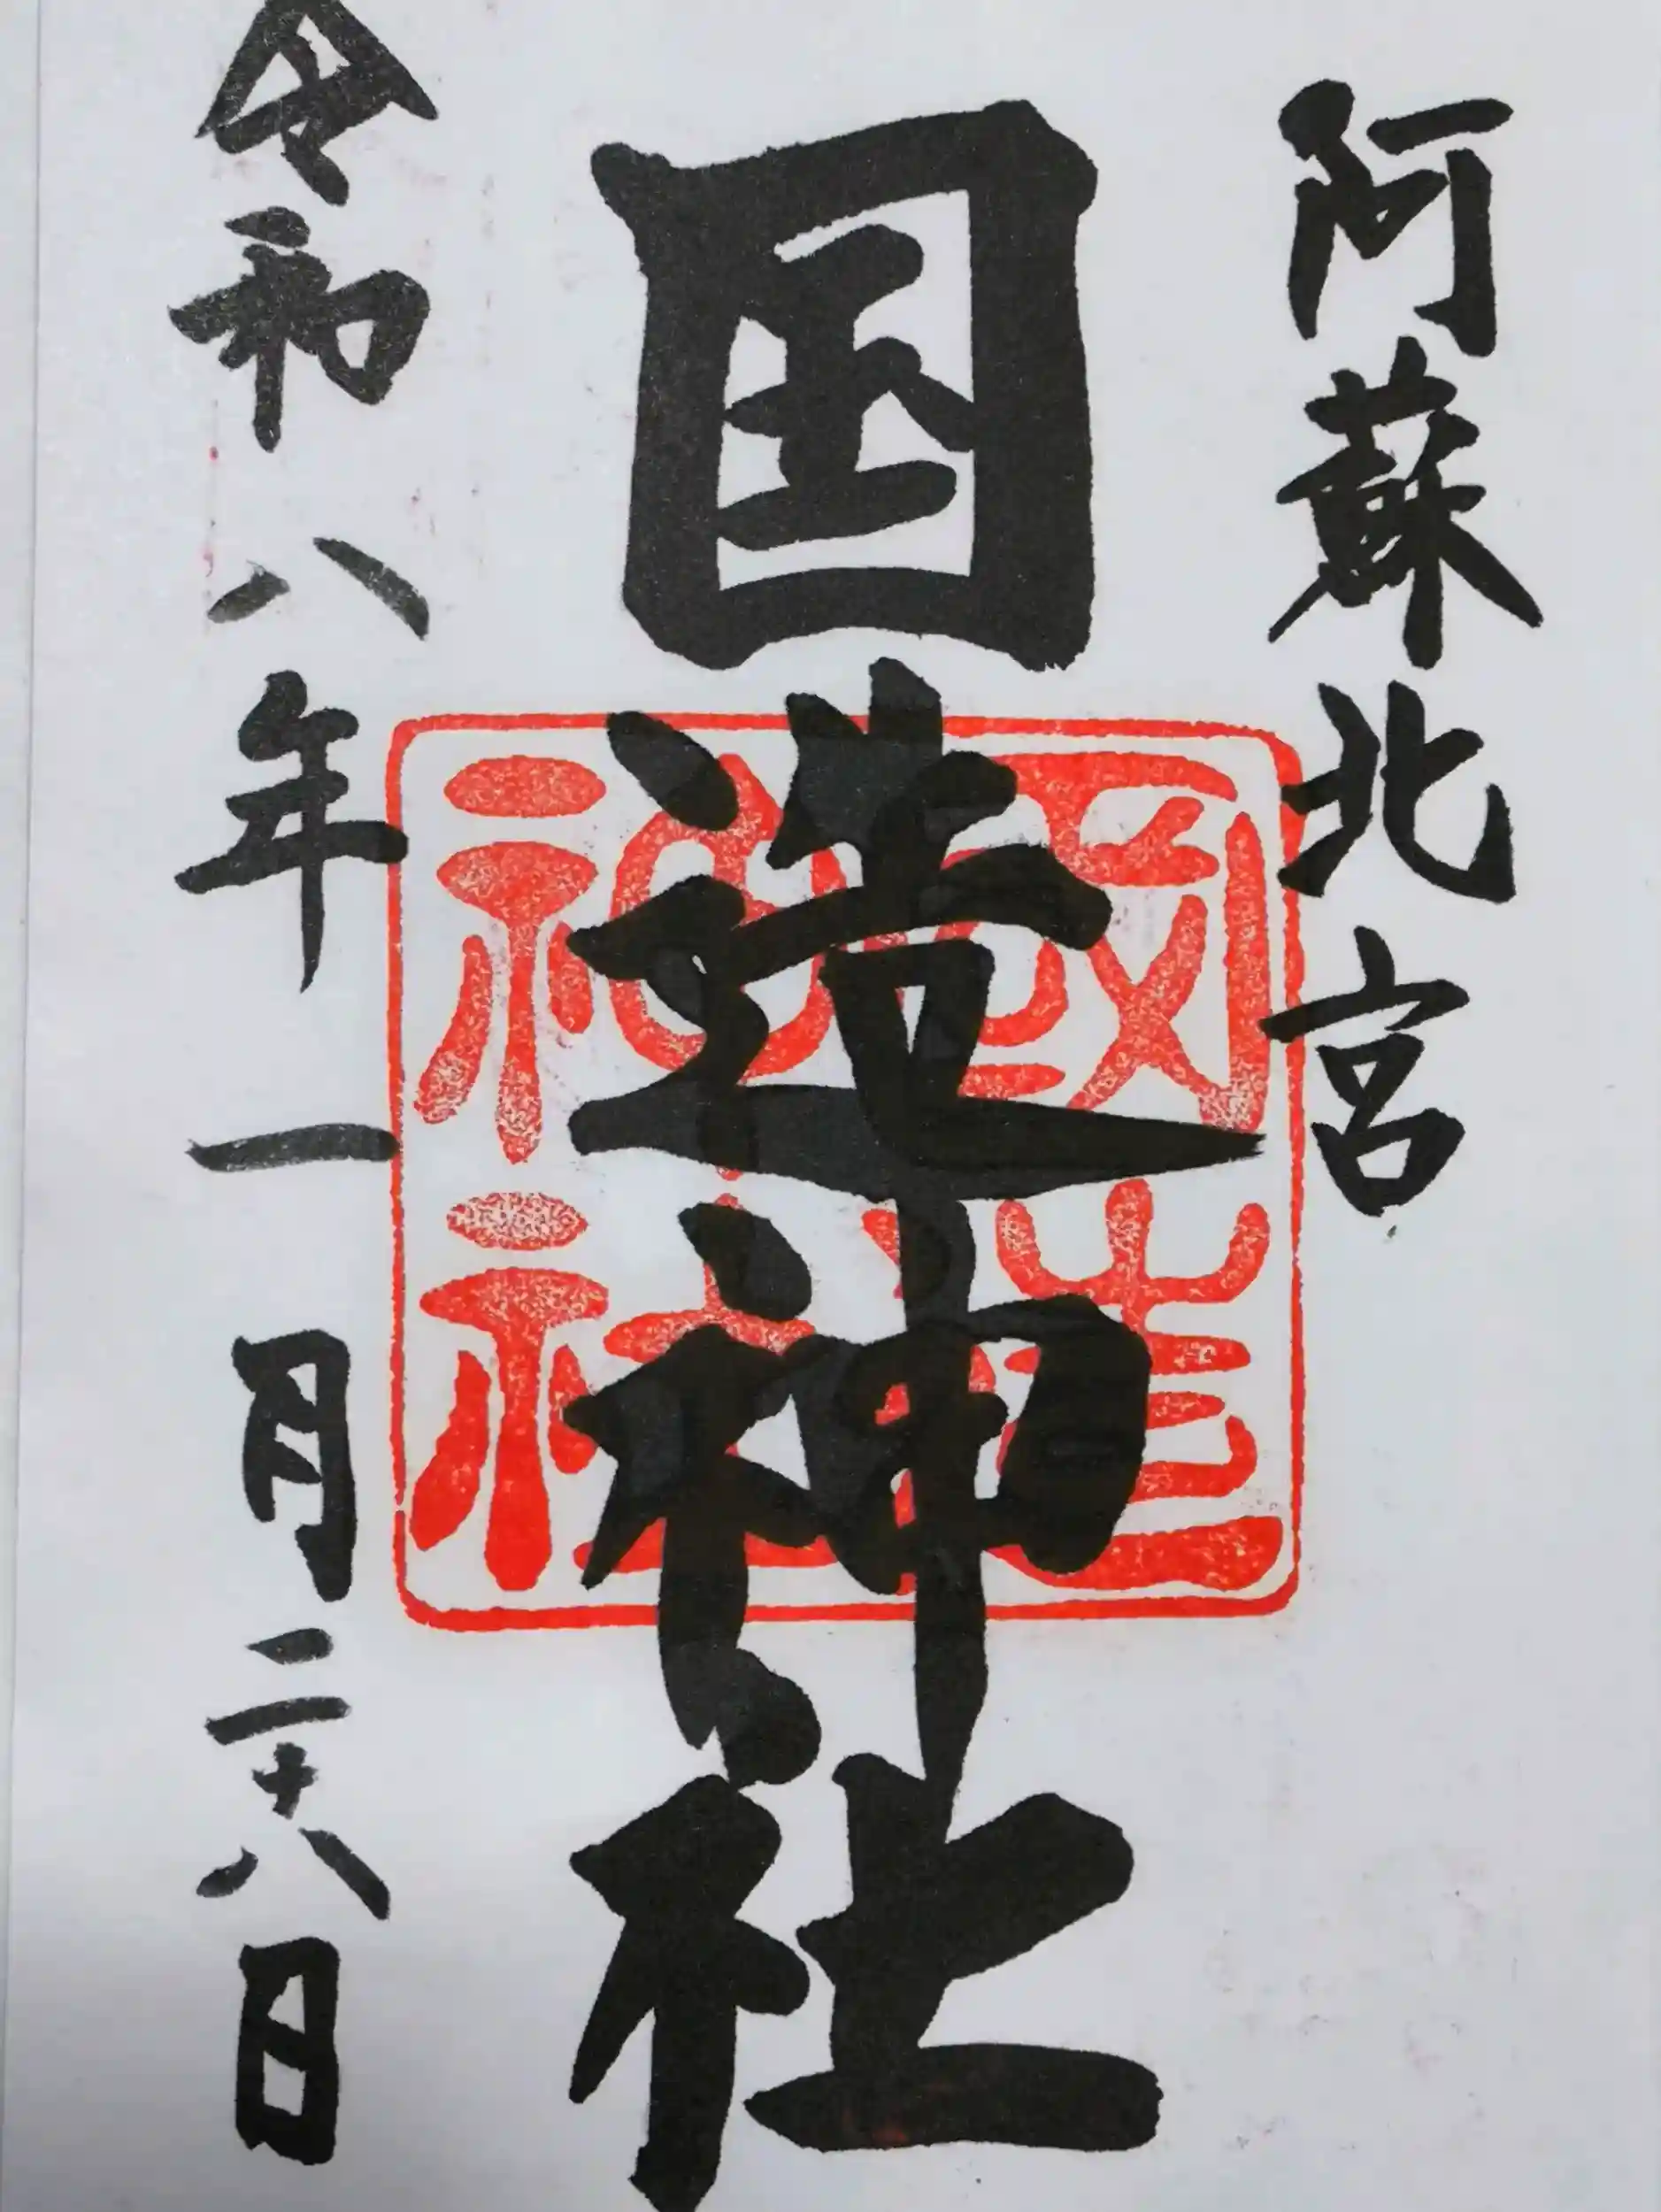 阿蘇北宮
国造神社
國造神社
令和八年一月二十八日